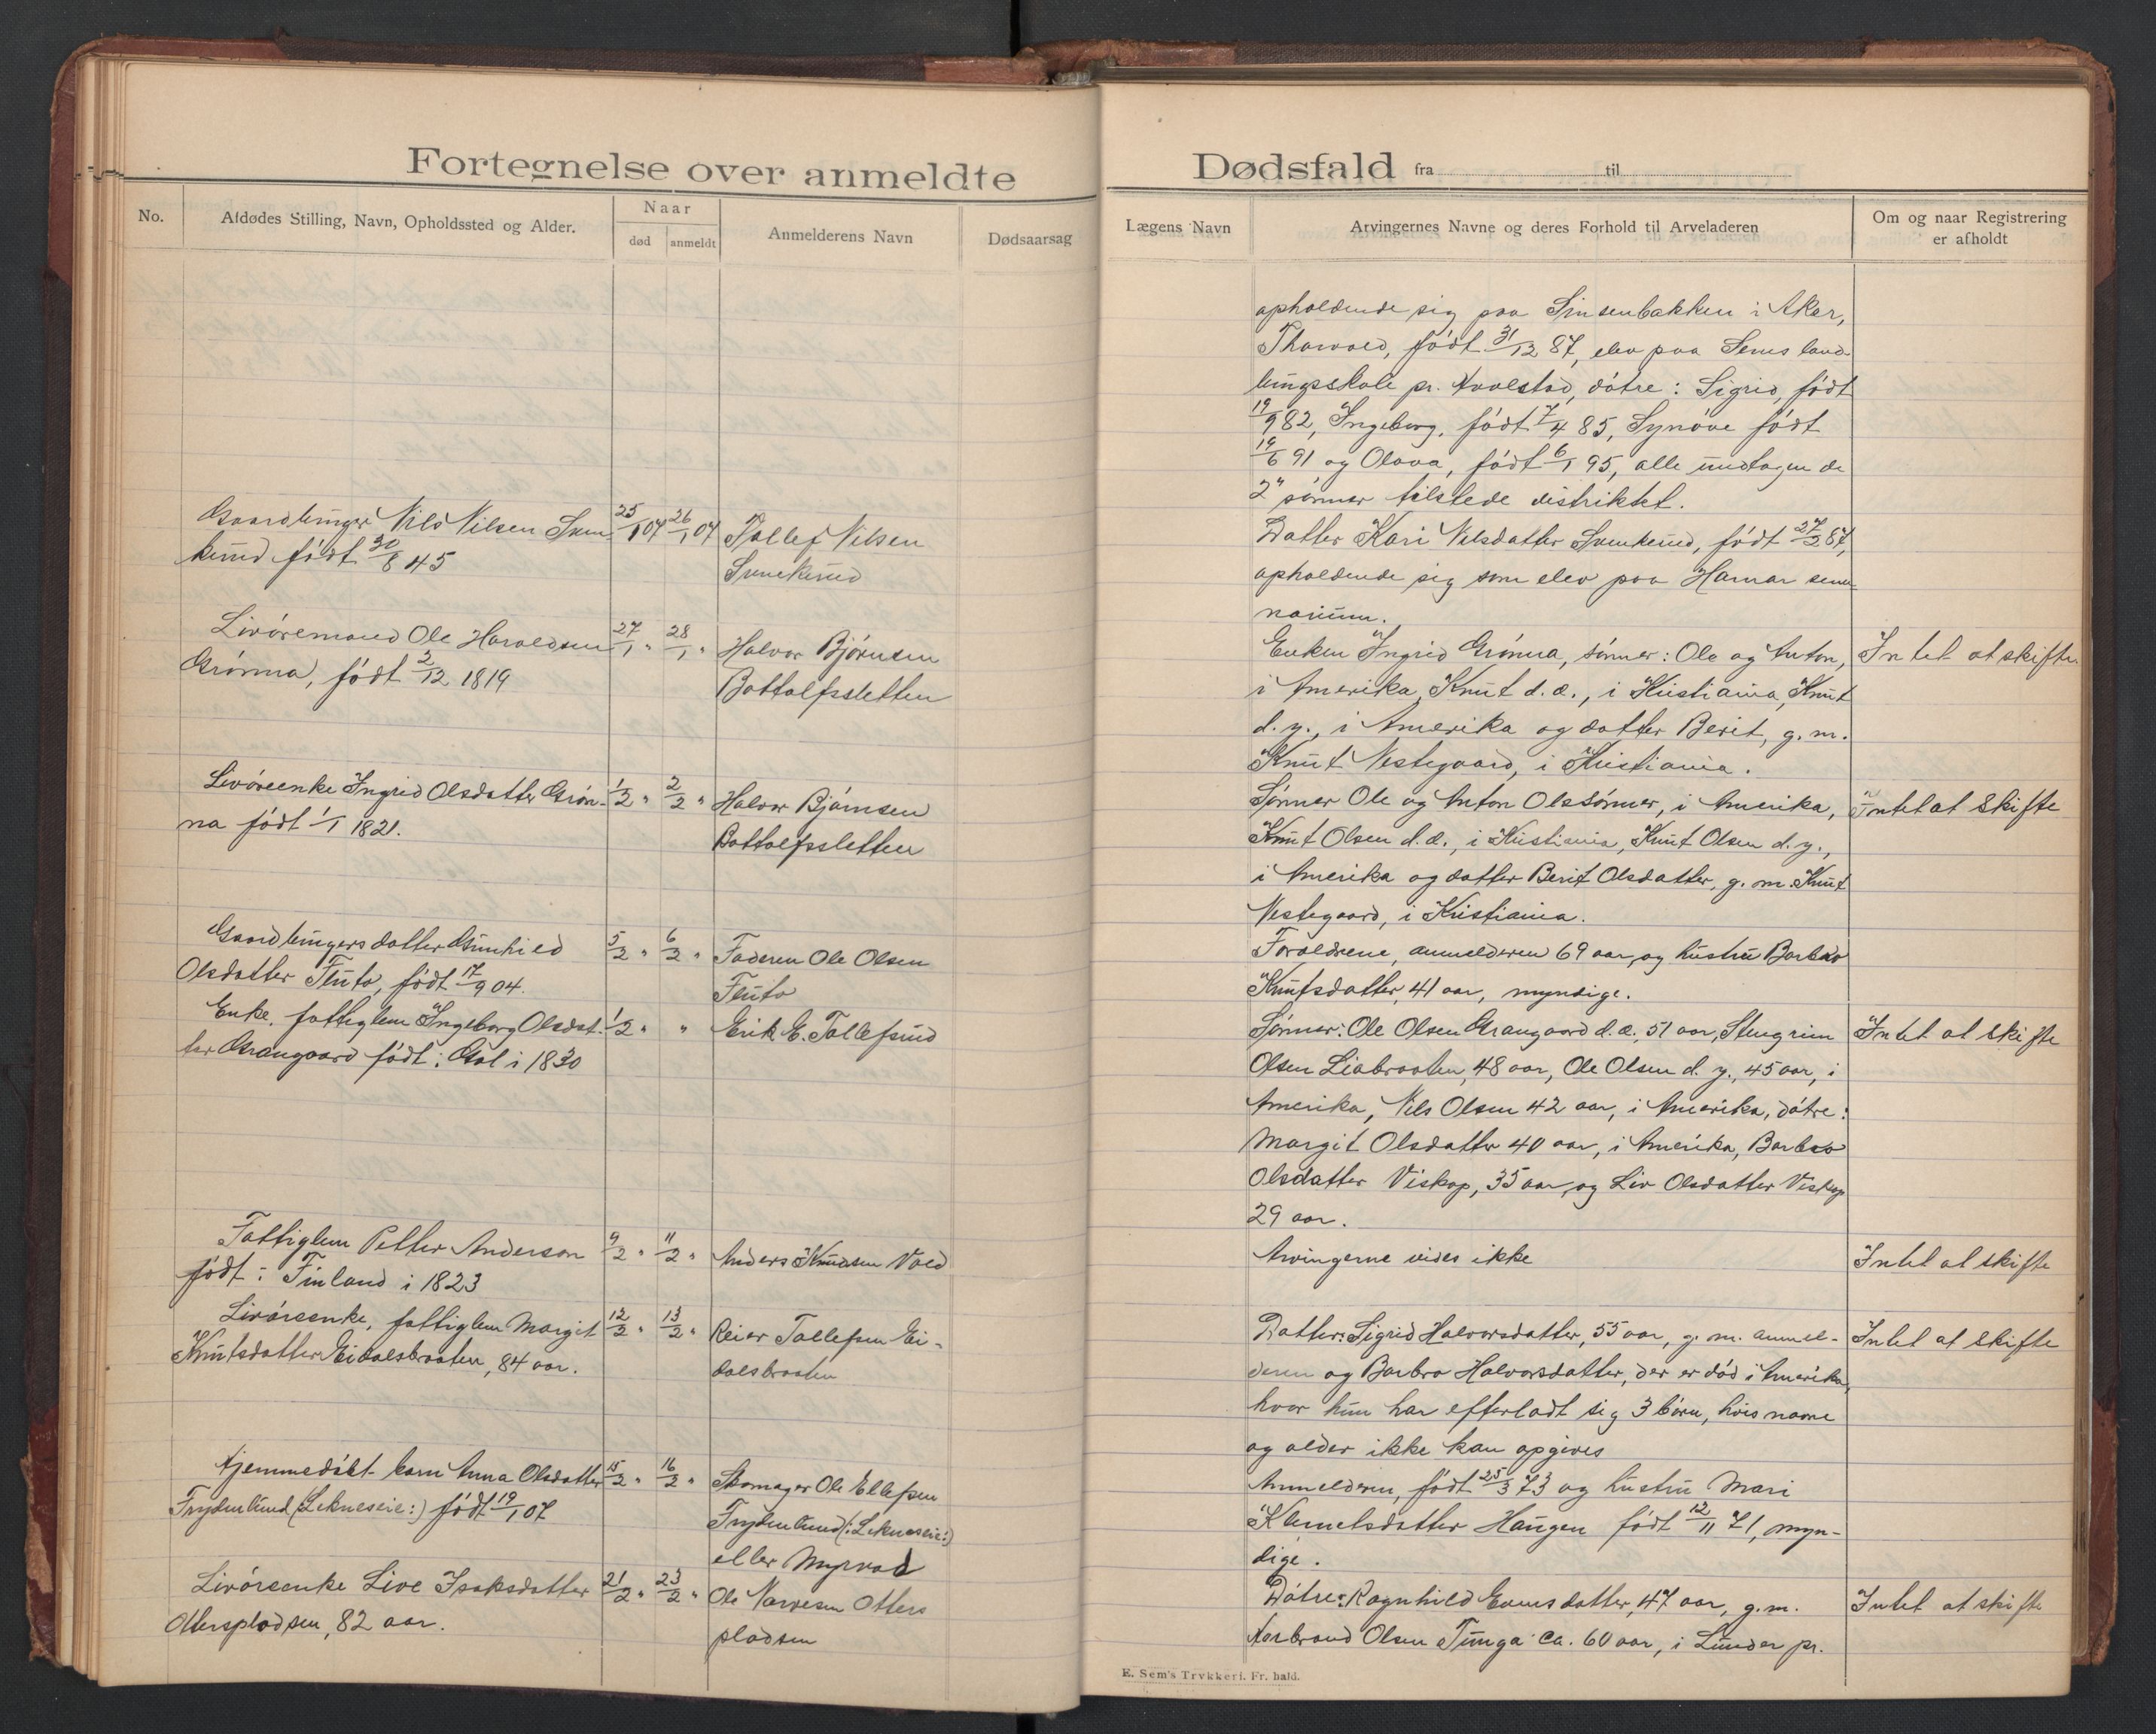 Fortegnelse over anmeldte
No.
Afdødes Stilling, Navn, Opholdssted og Alder.
Naar
død
anmeldt
Anmelderens Navn
Dødsaarsag
Gaardbruger Nils Nilsen Sven- 25/1 07 26/1 07 Tollef Nilsen
kerud født 30/8 45 Svenkerud
Livøremand Ole Haraldsen 27/1 " 28/1 " Halvor Bjørnsen
Grønna, født 2/12 1819 Bottolfssletten
Livøreenke Ingrid Olsdatter Grøn- 1/2 " 2/2 " Halvor Bjørnsen
na født 1/1 1821. Bottolfssletten
Gaardbrugersdatter Gunhild 5/2 " 6/2 " Faderen Ole Olsen
Olsdatter Fluto, født 17/9 04. Fluto
Enke, fattiglem Ingeborg Olsdat- 1/2 " " Erik E. Tollefsrud
ter Grangaard født i Gol i 1830
Fattiglem Petter Anderson 9/2 " 11/2 " Anders Knudsen Vold
født i Finland i 1823
Livøreenke, fattiglem Margit 12/2 " 13/2 " Reier Tollefsen Ei-
Knutsdatter Eidalsbraaten, 84 aar. dalsbraaten
Hjemmedøbt barn Anna Olsdatter 15/2 " 16/2 " Skomager Ole Ellefsen
Frydenlund (:Lekneseie:) født 19/1 07 Frydenlund (:Lekneseie:)
eller Myrvad
Livøreenke Live Isaksdatter 21/2 " 23/2 " Ole Narvesen Otters
Ottersplodsen, 82 aar. pladsen
Dødsfald fra til
Lægens Navn
Arvingernes Navne og deres Forhold til Arveladeren
Om og naar Registrering
er afholdt
opholdende sig paa Sinsenbakken i Aker,
Thorvald, født 31/12 87, elev paa Sems land
brugsskole pr. Hvalstad, døtre: Sigrid, født
19/9 82, Ingeborg, født 7/4 85, Synøve født
19/6 91 og Olava, født 6/1 95, alle undtagen de
2" sønner tilstede distriktet.
Datter Kari Nilsdatter Svenkerud, født 27/2 87,
opholdende sig som elev paa Hamar semi-
narium.
Enken Ingrid Grønna, sønner: Ole og Anton, Intet at skifte.
i Amerika, Knut d.æ., i Kristiania, Knut
d.y., i Amerika og datter Berit, g. m.
Knut Vestegaard, i Kristiania.
Sønner Ole og Anton Olssønner, i Amerika, Intet at skifte
Knut Olsen d.æ., i Kristiania, Knut Olsen d.y.,
i Amerika og datter Berit Olsdatter, g. m. Knut
Vestegaard, i Kristiania.
Forældrene, anmelderen 69 aar, og hustru Barbro
Knutsdatter, 41 aar, myndige.
Sønner: Ole Olsen Grangaard d.æ. 51 aar, Stengrim Intet at skifte
Olsen Liabraaten, 48 aar, Ole Olsen d.y., 45 aar, i
Amerika, Nils Olsen 42 aar, i Amerika, døtre:
Margit Olsdatter 40 aar, i Amerika, Barbro
Olsdatter Viskop, 35 aar, og Liv Olsdatter Viskop
29 aar.
Arvingerne vides ikke Intet at skifte
Datter: Sigrid Halvorsdatter, 55 aar, g. m. anmel- Intet at skifte
deren og Barbro Halvorsdatter, der er død i Amerika,
hvor hun har efterladt sig 3 børn, hvis navne
og alder ikke kan opgives
Anmelderen, født 25/3 73 og hustru Mari
Klemetsdatter Haugen født 12/11 71, myn-
dige.
Døtre: Ragnhild Evensdatter, 47 aar, g. m. Intet at skifte
Asbrand Olsen Tunga ca. 60 aar, i Lunder pr.
E. Sem's Trykkeri. Fr. hald.